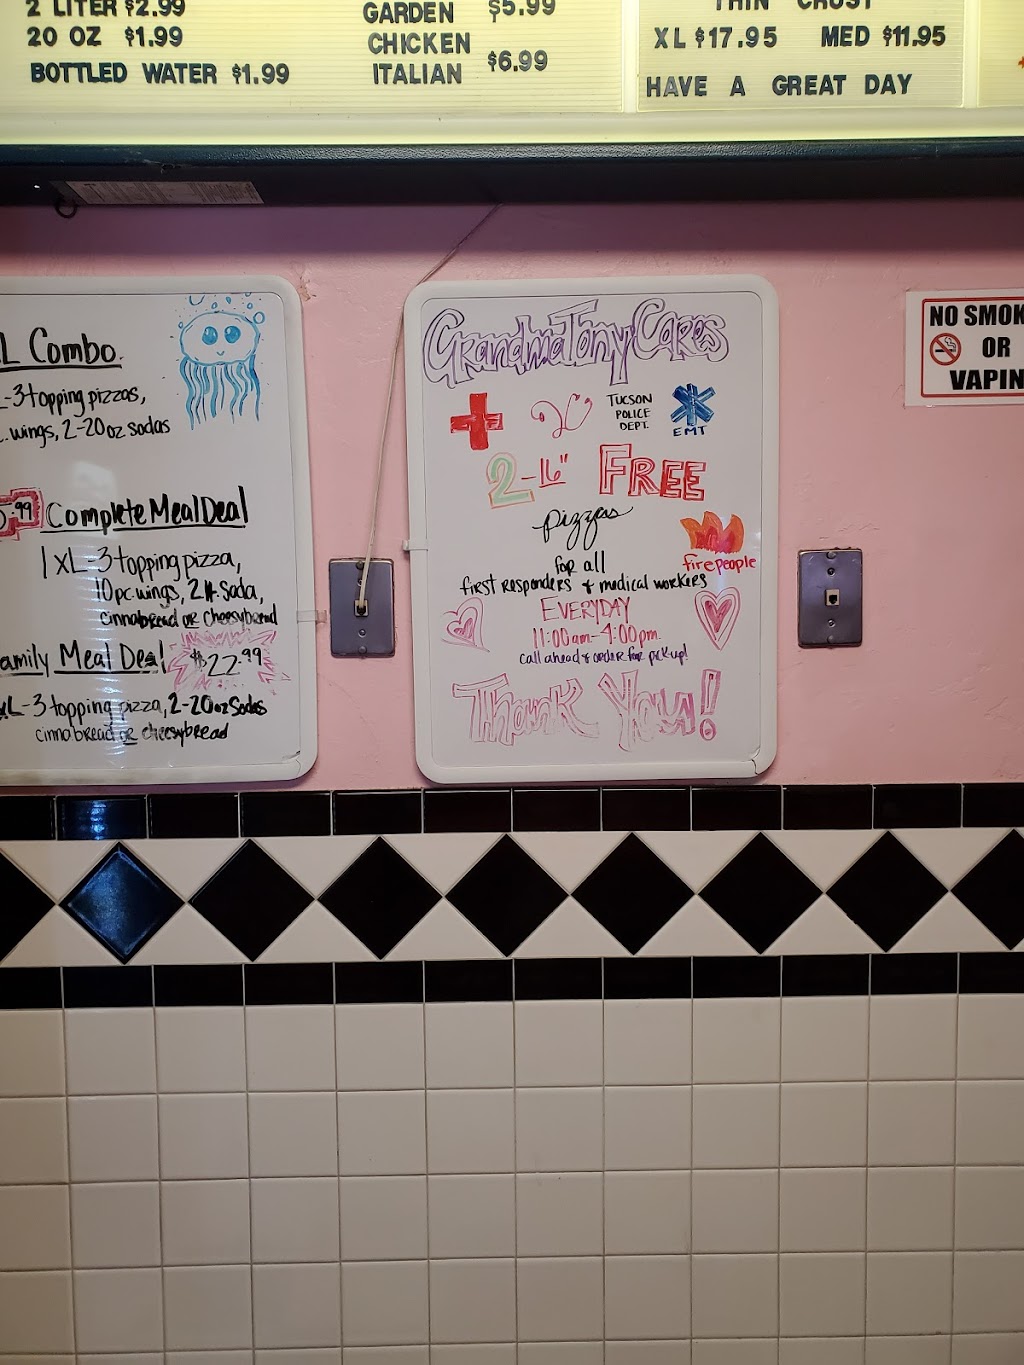 2 LITER $2.99
20 OZ $1.99
BOTTLED WATER $1.99
GARDEN $5.99
CHICKEN
ITALIAN $6.99
THIN CRUST
XL $17.95 MED $11.95
HAVE A GREAT DAY
L Combo
L-3 topping pizzas,
wings, 2-20oz sodas
.99 Complete Meal Deal
1 XL-3 topping pizza,
10pc. wings, 2lt. Soda,
cinnabread or cheesybread
amily Meal Deal $22.99
XL-3 topping pizza, 2-20oz Sodas
cinnabread or cheesybread
GrandmaTony Cares
TUCSON
POLICE
DEPT.
EMT
2-16" FREE
pizzas
firepeople
for all
first responders & medical workers
EVERYDAY
11:00am-4:00pm.
call ahead & order for pickup!
Thank You!
NO SMOK
OR
VAPIN